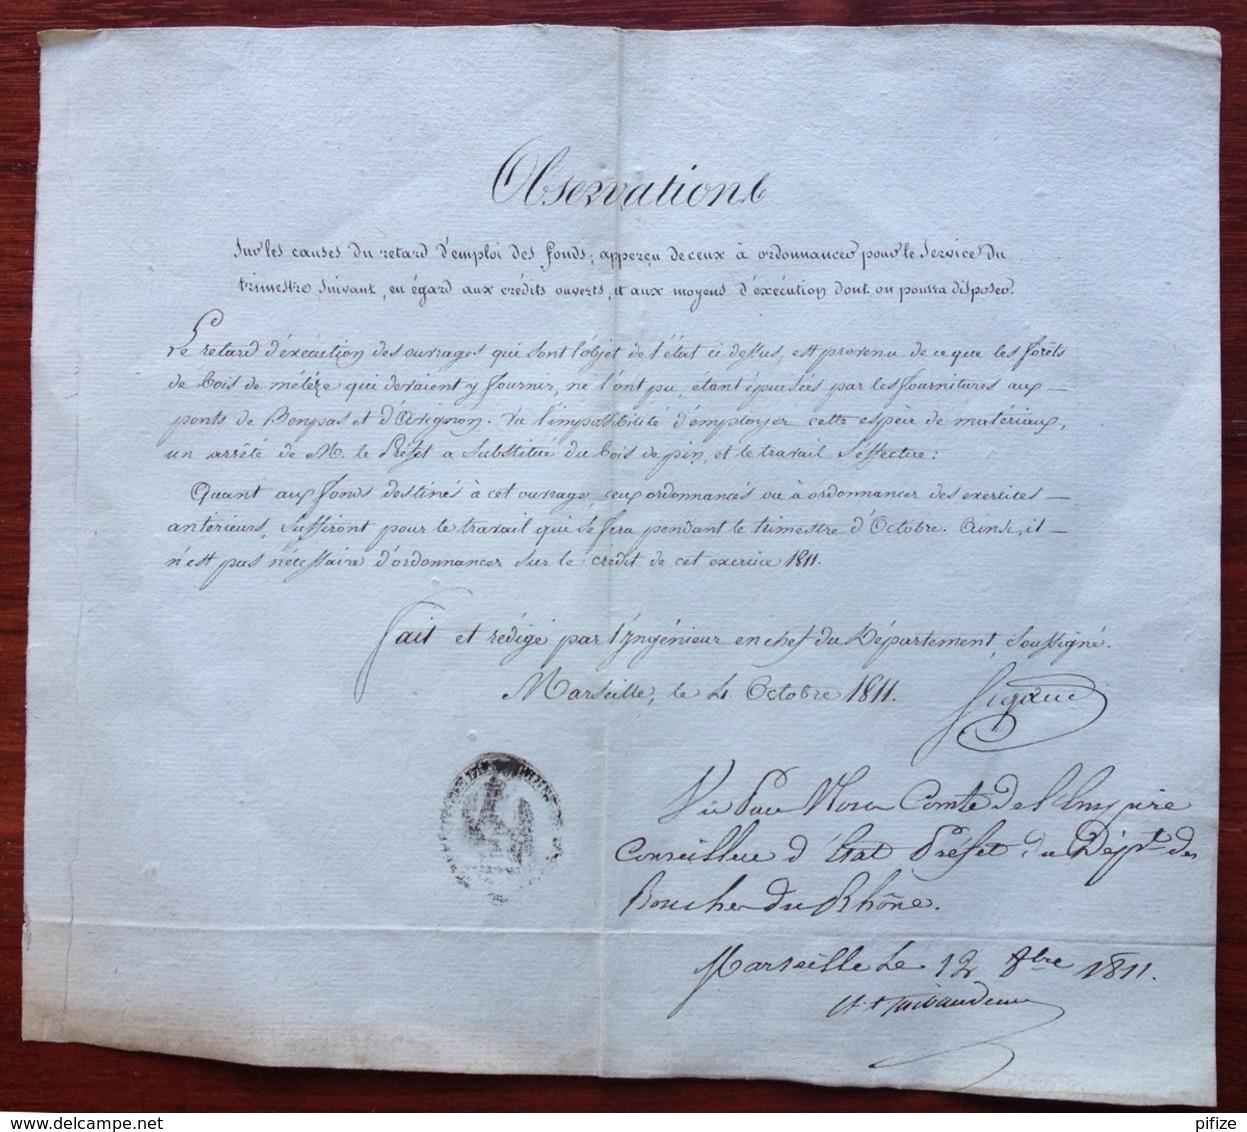 Observations
Sur les causes du retard d'emploi des fonds, apperçu de ceux à ordonnancer pour le Service du
trimestre suivant, eu égard aux crédits ouverts, et aux moyens d'éxécution dont on pourra disposer.
Le retard d'éxécution des ouvrages qui sont l'objet de l'état ci dessus, est provenu de ce que les forêts
de bois de mélèze qui devaient y fournir, ne l'ont pu, étant épuisées par les fournitures aux
ponts de Bonpas et d'Avignon. Vu l'impossibilité d'employer cette espèce de matériaux,
un arrêté de M. le Préfet a substitué du bois de pin, et le travail s'effectue:
Quant aux fonds destinés à cet ouvrage, ceux ordonnancés ou à ordonnancer des exercices
antérieurs, suffiront pour le travail qui se fera pendant le trimestre d'Octobre. Ainsi, il
n'est pas nécessaire d'ordonnancer sur le crédit de cet exercice 1811.
Fait et rédigé par l'Ingénieur en chef du Département, soussigné.
Marseille, le 4 Octobre 1811.
Vu Par Nous Comte de l'Empire
Conseiller d'État Préfet du Dépt. des
Bouches du Rhône.
Marseille Le 12 8bre 1811.
Thibaudeau
pifize